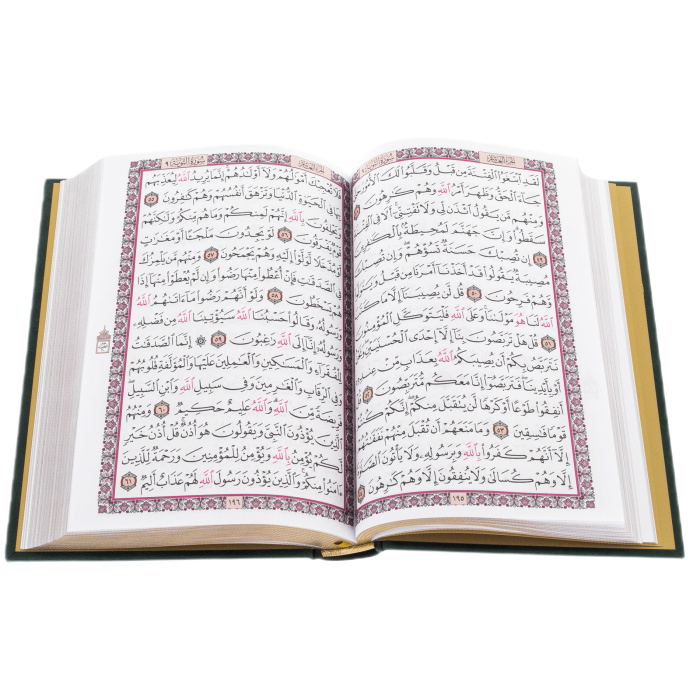 الجزء العاشر
سورة التوبة
لَقَدِ ٱبْتَغَوُا۟ ٱلْفِتْنَةَ مِن قَبْلُ وَقَلَّبُوا۟ لَكَ ٱلْأُمُورَ
جَآءَ ٱلْحَقُّ وَظَهَرَ أَمْرُ ٱللَّهِ وَهُمْ كَٰرِهُونَ
وَمِنْهُم مَّن يَقُولُ ٱئْذَن لِّى وَلَا تَفْتِنِّىٓ أَلَا فِى
سَقَطُوا۟ وَإِنَّ جَهَنَّمَ لَمُحِيطَةٌۢ بِٱلْكَٰفِرِينَ ٤٩
إِن تُصِبْكَ حَسَنَةٌ تَسُؤْهُمْ وَإِن
مُصِيبَةٌ يَقُولُوا۟ قَدْ أَخَذْنَآ أَمْرَنَا مِن قَبْلُ
وَّهُمْ فَرِحُونَ ٥٠ قُل لَّن يُصِيبَنَآ إِلَّا مَا
ٱللَّهُ لَنَا هُوَ مَوْلَىٰنَا وَعَلَى ٱللَّهِ فَلْيَتَوَكَّلِ ٱلْمُؤْمِنُونَ
٥١ قُلْ هَلْ تَرَبَّصُونَ بِنَآ إِلَّآ إِحْدَى ٱلْحُسْنَيَيْنِ
نَتَرَبَّصُ بِكُمْ أَن يُصِيبَكُمُ ٱللَّهُ بِعَذَابٍ مِّنْ
أَوْ بِأَيْدِينَا فَتَرَبَّصُوٓا۟ إِنَّا مَعَكُم مُّتَرَبِّصُونَ ٥٢
أَنفِقُوا۟ طَوْعًا أَوْ كَرْهًا لَّن يُتَقَبَّلَ مِنكُمْ إِنَّكُمْ كُنتُمْ
قَوْمًا فَٰسِقِينَ ٥٣ وَمَا مَنَعَهُمْ أَن تُقْبَلَ مِنْهُمْ
إِلَّآ أَنَّهُمْ كَفَرُوا۟ بِٱللَّهِ وَبِرَسُولِهِۦ وَلَا يَأْتُونَ ٱلصَّلَوٰةَ
إِلَّا وَهُمْ كُسَالَىٰ وَلَا يُنفِقُونَ إِلَّا وَهُمْ كَٰرِهُونَ
١٩٥
الجزء العاشر
سورة التوبة ٩
فَلَا تُعْجِبْكَ أَمْوَٰلُهُمْ وَلَآ أَوْلَٰدُهُمْ إِنَّمَا يُرِيدُ ٱللَّهُ لِيُعَذِّبَهُم
بِهَا فِى ٱلْحَيَوٰةِ ٱلدُّنْيَا وَتَزْهَقَ أَنفُسُهُمْ وَهُمْ كَٰفِرُونَ ٥٥
وَيَحْلِفُونَ بِٱللَّهِ إِنَّهُمْ لَمِنكُمْ وَمَا هُم مِّنكُمْ وَلَٰكِنَّهُمْ
قَوْمٌ يَفْرَقُونَ ٥٦ لَوْ يَجِدُونَ مَلْجَـًٔا أَوْ مَغَٰرَٰتٍ
أَوْ مُدَّخَلًا لَّوَلَّوْا۟ إِلَيْهِ وَهُمْ يَجْمَحُونَ ٥٧ وَمِنْهُم مَّن يَلْمِزُكَ
فِى ٱلصَّدَقَٰتِ فَإِنْ أُعْطُوا۟ مِنْهَا رَضُوا۟ وَإِن لَّمْ يُعْطَوْا۟ مِنْهَآ إِذَا
هُمْ يَسْخَطُونَ ٥٨ وَلَوْ أَنَّهُمْ رَضُوا۟ مَآ ءَاتَىٰهُمُ ٱللَّهُ
وَرَسُولُهُۥ وَقَالُوا۟ حَسْبُنَا ٱللَّهُ سَيُؤْتِينَا ٱللَّهُ مِن فَضْلِهِۦ
وَرَسُولُهُۥٓ إِنَّآ إِلَى ٱللَّهِ رَٰغِبُونَ ٥٩ ۞ إِنَّمَا ٱلصَّدَقَٰتُ
لِلْفُقَرَآءِ وَٱلْمَسَٰكِينِ وَٱلْعَٰمِلِينَ عَلَيْهَا وَٱلْمُؤَلَّفَةِ قُلُوبُهُمْ
وَفِى ٱلرِّقَابِ وَٱلْغَٰرِمِينَ وَفِى سَبِيلِ ٱللَّهِ وَٱبْنِ ٱلسَّبِيلِ
فَرِيضَةً مِّنَ ٱللَّهِ وَٱللَّهُ عَلِيمٌ حَكِيمٌ ٦٠ وَمِنْهُمُ
ٱلَّذِينَ يُؤْذُونَ ٱلنَّبِىَّ وَيَقُولُونَ هُوَ أُذُنٌ قُلْ أُذُنُ خَيْرٍ
لَّكُمْ يُؤْمِنُ بِٱللَّهِ وَيُؤْمِنُ لِلْمُؤْمِنِينَ وَرَحْمَةٌ لِّلَّذِينَ
ءَامَنُوا۟ مِنكُمْ وَٱلَّذِينَ يُؤْذُونَ رَسُولَ ٱللَّهِ لَهُمْ عَذَابٌ أَلِيمٌ ٦١
١٩٦